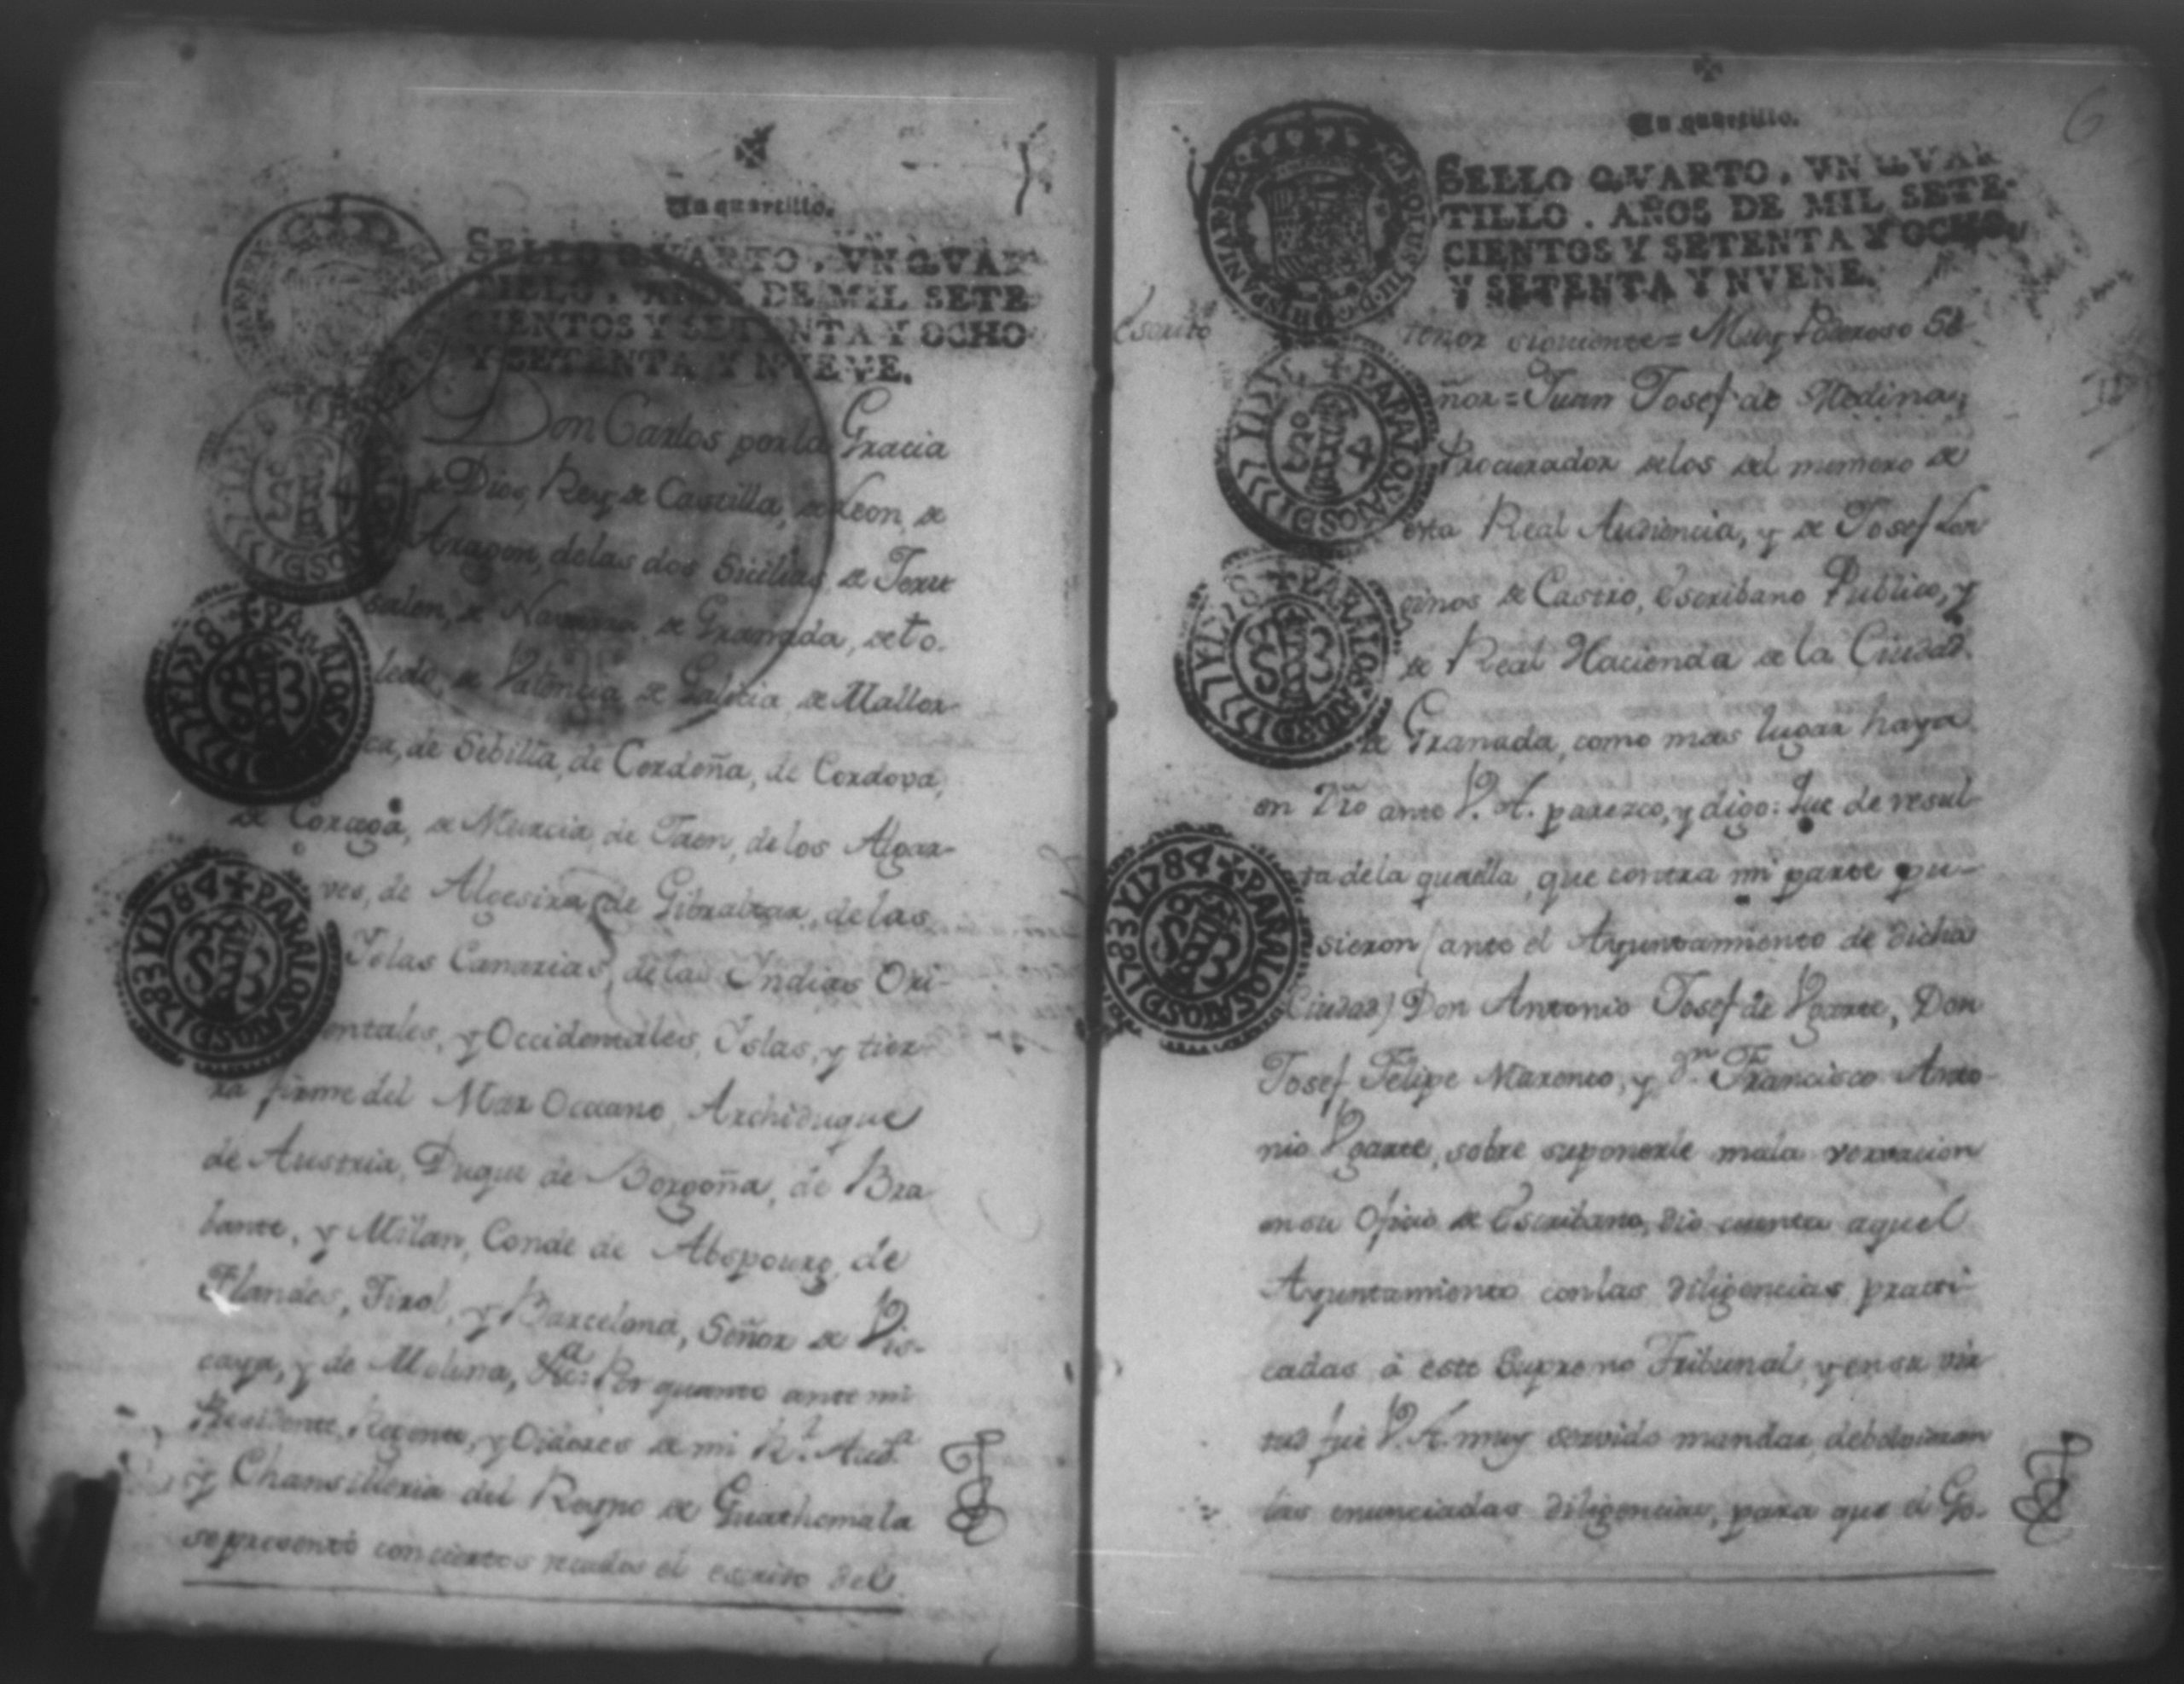 Un quartillo.
SELLO QVARTO, VN QVAR
TILLO, AÑOS DE MIL SETE
CIENTOS Y SETENTA Y OCHO
Y SETENTA Y NVEVE.
Don Carlos por la Gracia
de Dios, Rey de Castilla, de Leon, de
Aragon, de las dos Sicilias, de Jeru
salen, de Navarra, de Granada, de to-
ledo, de Valencia, de Galicia, de Mallor-
ca, de Sebilla, de Cerdeña, de Cordova,
de Corcega, de Murcia, de Jaen, de los Algar-
ves, de Algesira, de Gibraltar, de las
Islas Canarias, de las Indias Ori-
entales, y Occidentales, Islas, y tier-
ra firme del Mar Occeano, Archiduque
de Austria, Duque de Borgoña, de Bra
bante, y Milan, Conde de Abspourg, de
Flandes, Tirol, y Barcelona, Señor de Vis-
caya, y de Molina, &a. Por quanto ante mi
Presidente, Regente, y Oidores de mi Rl. Auda
y Chansilleria del Reyno de Guathemala
se presentó con ciertos recados el escrito del
8 Y 1779 + PARA LOS AÑOS D 1
1783 Y 1784 + PARA LOS AÑOS D
6
Un quartillo.
SELLO QVARTO, VN QVAR
TILLO, AÑOS DE MIL SETE-
CIENTOS Y SETENTA Y OCHO
Y SETENTA Y NVEVE.
CAROLUS III D G HISPANIAR REX
Escrito
tenor siguiente = Muy Poderoso Se
ñor = Juan Josef de Medina,
Procurador de los del numero de
esta Real Audiencia, y de Josef Lon
ginos de Castro, Escribano Publico, y
de Real Hacienda de la Ciudad
de Granada, como mas lugar haya
en Dro ante V. A. parezco, y digo: Que de resul-
ta de la querella, que contra mi parte pu-
sieron (ante el Ayuntamiento de dicha
Ciudad) Don Antonio Josef de Vgarte, Don
Josef Felipe Marenco, y Dn. Francisco Anto-
nio Vgarte, sobre suponerle mala versacion
en su Oficio de Escribano, dió cuenta aquel
Ayuntamiento con las diligencias practi-
cadas á este Supremo Tribunal, y en su vir
tud fue V. A. muy servido mandar, debolvieran
las enunciadas diligencias, para que el Go-
+ PARA LOS AÑOS D
+ PARA LOS AÑOS D
1783 Y 1784 + PARA LOS AÑOS D